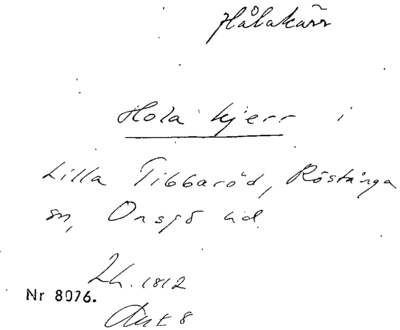 Hålakärr
Hola kjerr i
Lilla Tibbaröd, Röstånga
sn, Onsjö hd.
Lh. 1812
Nr 8076.
Akt 8